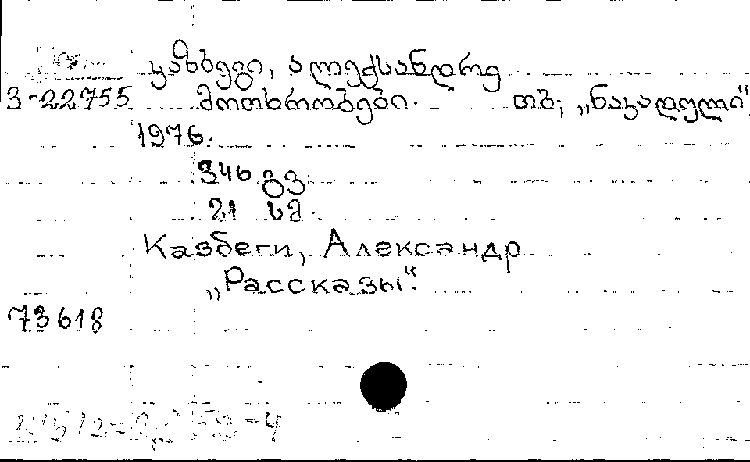 ყაზბეგი, ალექსანდრე
3-22755 მოთხრობები. თბ; „ნაკადული"
1976.
346 გვ.
21 სმ.
Казбеги, Александр
„Рассказы".
73618